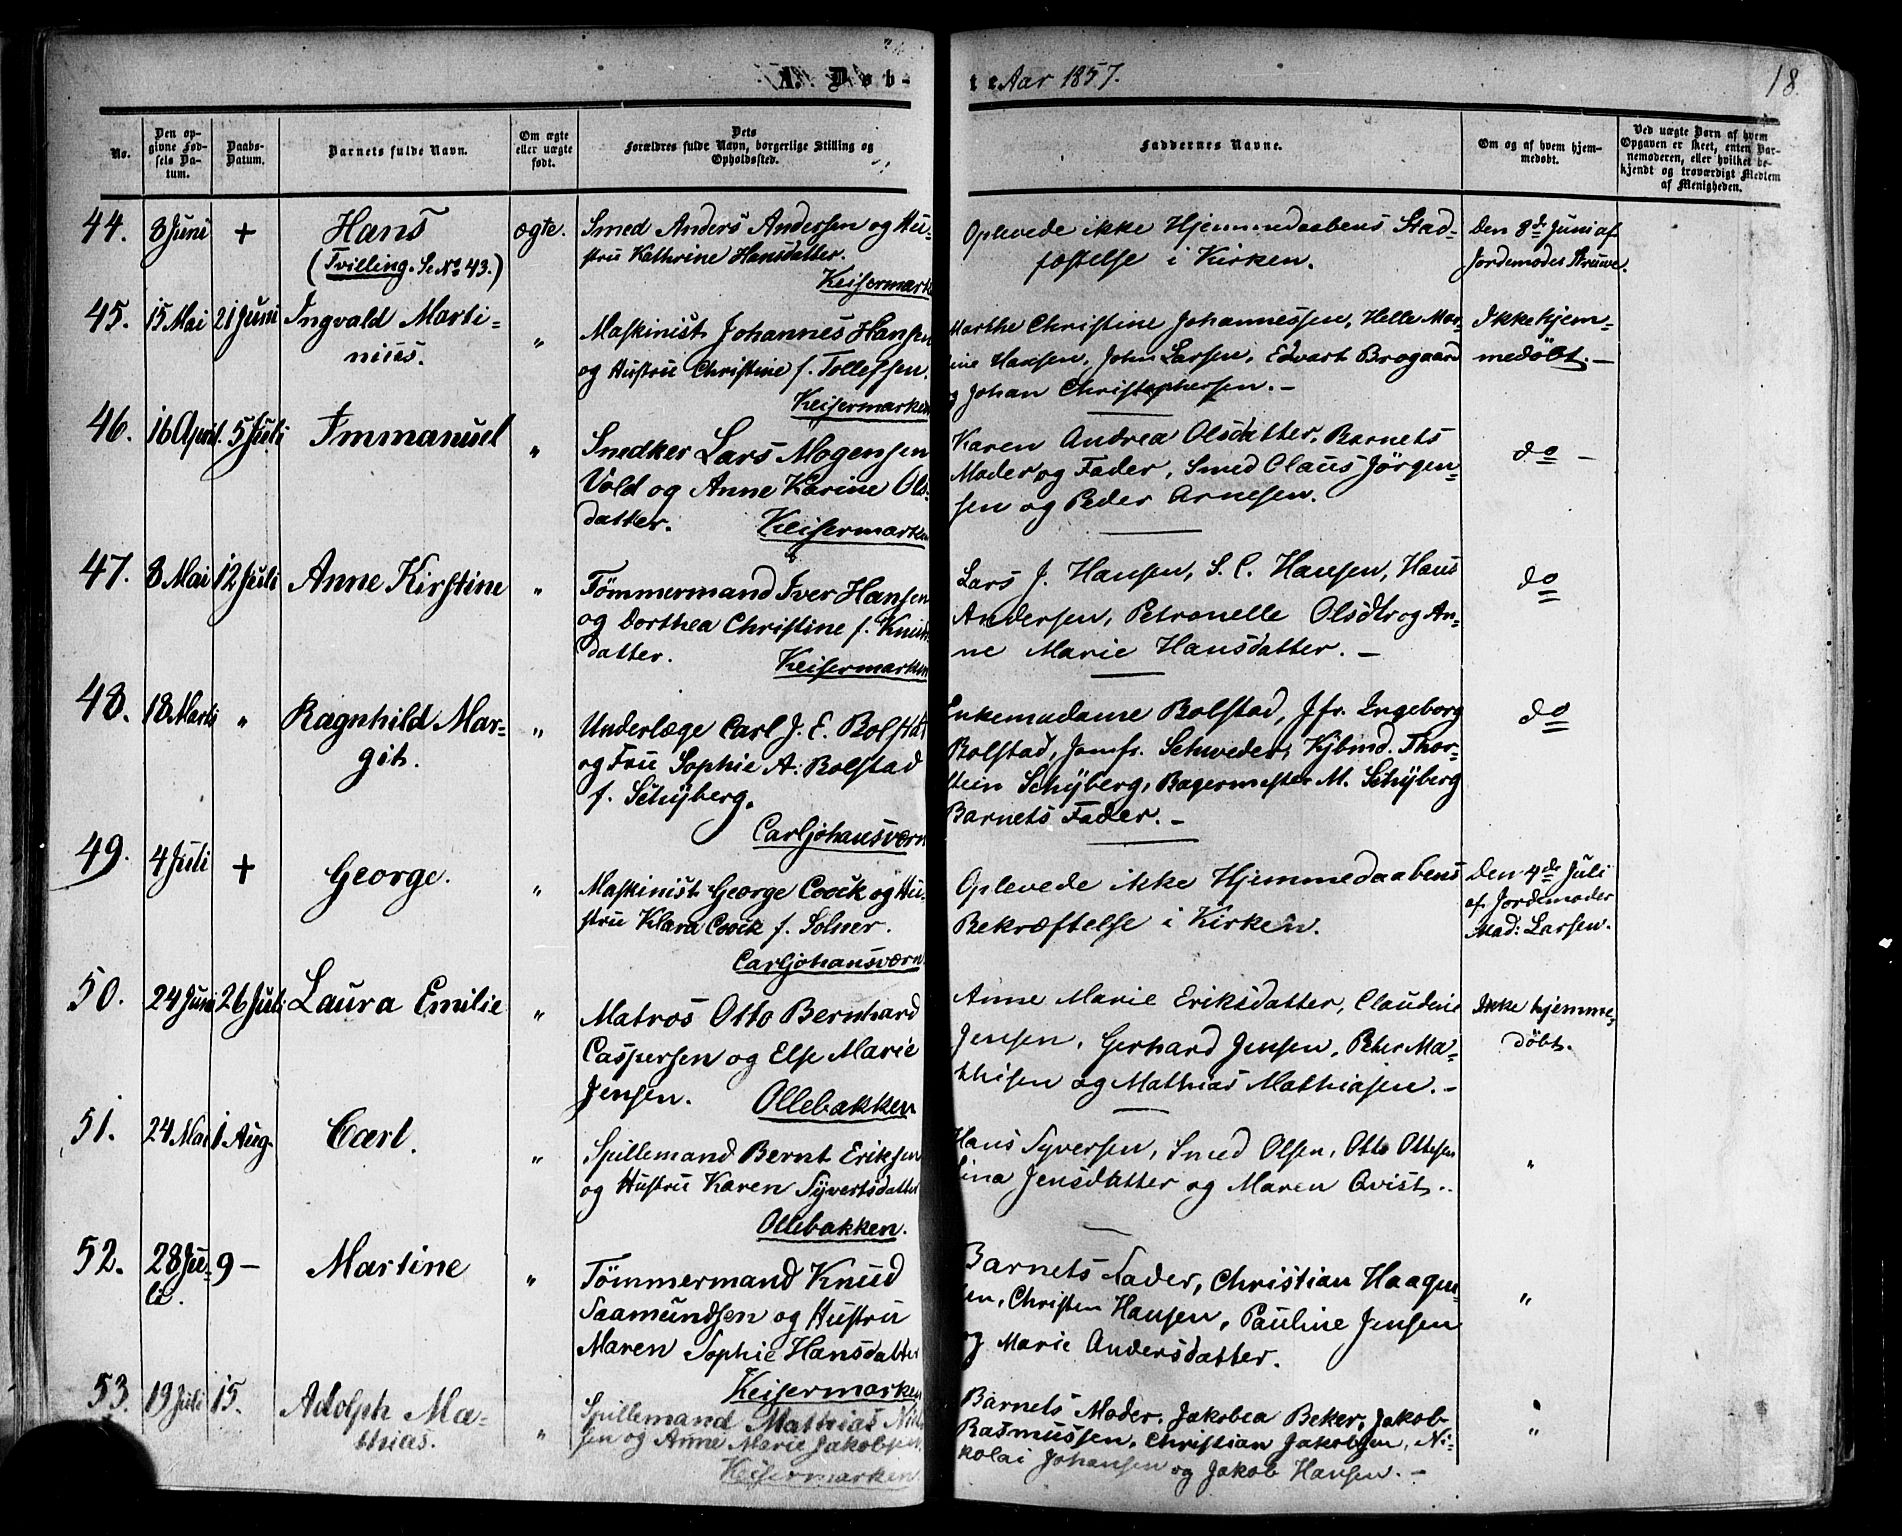 A. Døb-
te Aar 1857.
18.
No.
Den op-
givne Fød-
sels Da-
tum.
Daabs-
Datum.
Barnets fulde Navn.
Om ægte
eller uægte
født.
Dets
Forældres fulde Navn, borgerlige Stilling og
Opholdssted.
Faddernes Navne.
Om og af hvem hjem-
medøbt.
Ved uægte Børn af hvem
Opgaven er skeet, enten Bar-
nemoderen, eller hvilket be-
kjendt og troværdigt Medlem
af Menigheden.
44. 8 Juni + Hans ægte. Smed Anders Andersen og Hu-
(Tvilling. Se No 43.) stru Kathrine Hansdatter.
Keisermarke
Oplevede ikke Hjemmedaabens Stad-
fæstelse i Kirken.
Den 8de Juni af
Jordemoder Struwe.
45. 15 Mai 21 Juni Ingvald Marti-
nius. " Maskinist Johannes Hansen
og Hustru Christine f. Tollefsen.
Keisermarken
Marthe Christine Johannessen, Helle Mar-
ine Hansen, John Larsen, Edvart Brogaard
og Johan Christophersen. -
Ikke hjem-
medöbt. -
46. 16 April. 5 Juli Immanuel " Snedker Lars Mogensen
Vold og Anne Karine Ols-
datter. Keisermarken
Karen Andrea Olsdatter, Barnets
Moder og Fader, Smed Claus Jörgen-
sen og Peder Arnesen.
do -
47. 8 Mai 12 Juli Anne Kirstine " Tömmermand Iver Hansen
og Dorthea Christine f. Knuds
datter. Keisermarken
Lars J. Hansen, S. C. Hansen, Hans
Andersen, Petronelle Olsdtr og An-
ne Marie Hansdatter. -
do
48. 18 Marts " Ragnhild Mar-
git. " Underlæge Carl J. E. Bolstad
og Frue Sophie A. Bolstad
f. Schyberg.
Carljohansværn
Enkemadame Bolstad, Jfr. Ingeborg
Bolstad, Jomfr. Schweder, Kjbmd. Thor-
stein Schyberg, Bagermester M. Schyberg
Barnets Fader. -
do
49. 4 Juli + George. " Maskinist George Coock og Hu-
stru Klara Coock f. Solner.
Carljohansværn.
Oplevede ikke Hjemmedaabens
Bekræftelse i Kirken.
Den 4de Juli
af Jordemoder
Mad: Larsen.
50. 24 Juni 26 Juli Laura Emilie " Matros Otto Bernhard
Caspersen og Else Marie
Jensen. Ollebakken
Anne Marie Eriksdatter, Claudine
Jensen, Gerhard Jensen, Peter Ma-
thisen og Mathias Mathiasen. -
Ikke hjemme-
döbt.
51. 24 Mai 1 Aug. Carl. " Spillemand Bernt Eriksen
og Hustru Karen Syvertsdatter
Ollebakken.
Hans Syversen, Smed Olsen, Otto Ottesen
Lina Jensdatter og Maren Qvist. -
"
52. 28 Ju-
li. 9 - Martine " Tömmermand Knud
Saamundsen og Hustru
Maren Sophie Hansdatter
Keisermarken
Barnets Fader, Christian Haagen-
sen, Christen Hansen, Pauline Jensen
og Marie Andersdatter.
"
53. 19 Juli 15. Adolph Ma-
thias. " Spillemand Mathias Nil-
sen og Anne Marie Jakobsen,
Keisermarken
Barnets Moder, Jakobea Beker, Jakob
Rasmussen, Christian Jakobsen, Ni-
kolai Johansen og Jakob Hansen. -
"